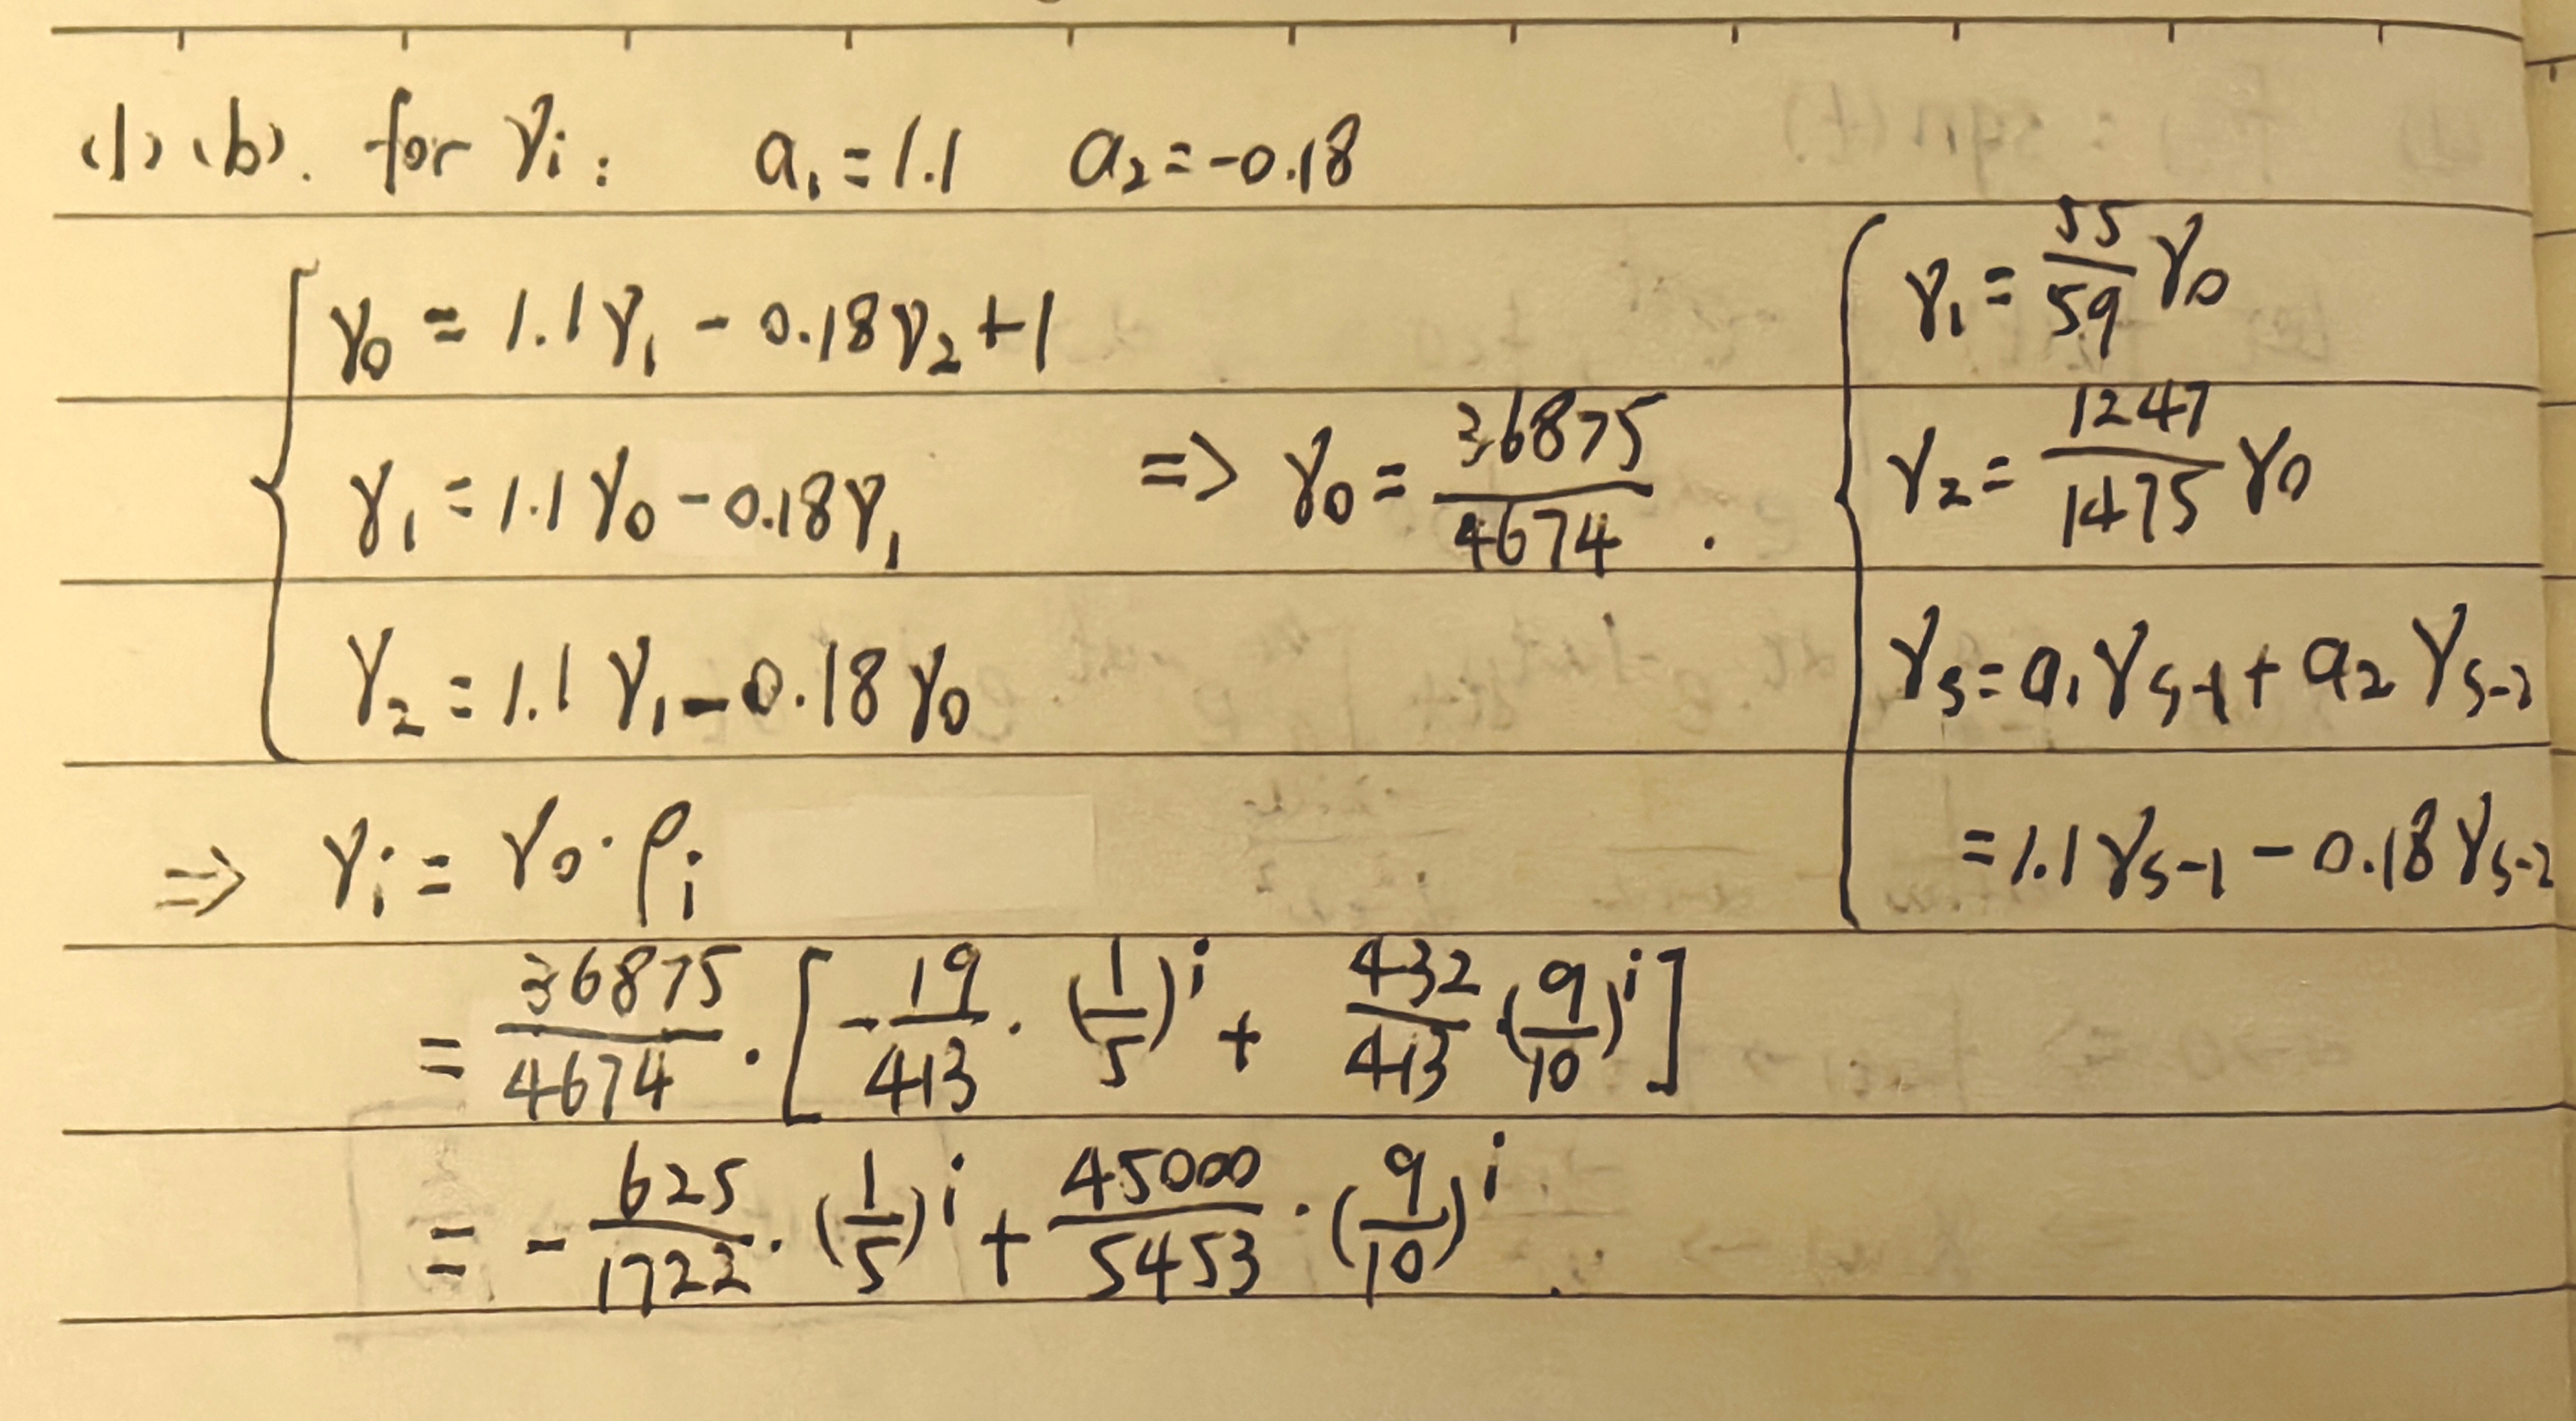 (1)(b). for γi: a₁=1.1 a₂=-0.18
γ₀ = 1.1γ₁ - 0.18γ₂+1
γ₁ = 1.1γ₀-0.18γ₁
γ₂ = 1.1γ₁-0.18γ₀
=> γ₀= 36875/4674 .
γ₁= 55/59 γ₀
γ₂= 1247/1475 γ₀
γs= a₁γs-1+ a₂γs-2
=1.1γs-1 - 0.18γs-2
=> γi = γ₀·ρi
= 36875/4674 · [-19/413 · (1/5)^i + 432/413 ·(9/10)^i]
= - 625/1722 · (1/5)^i + 45000/5453 · (9/10)^i .